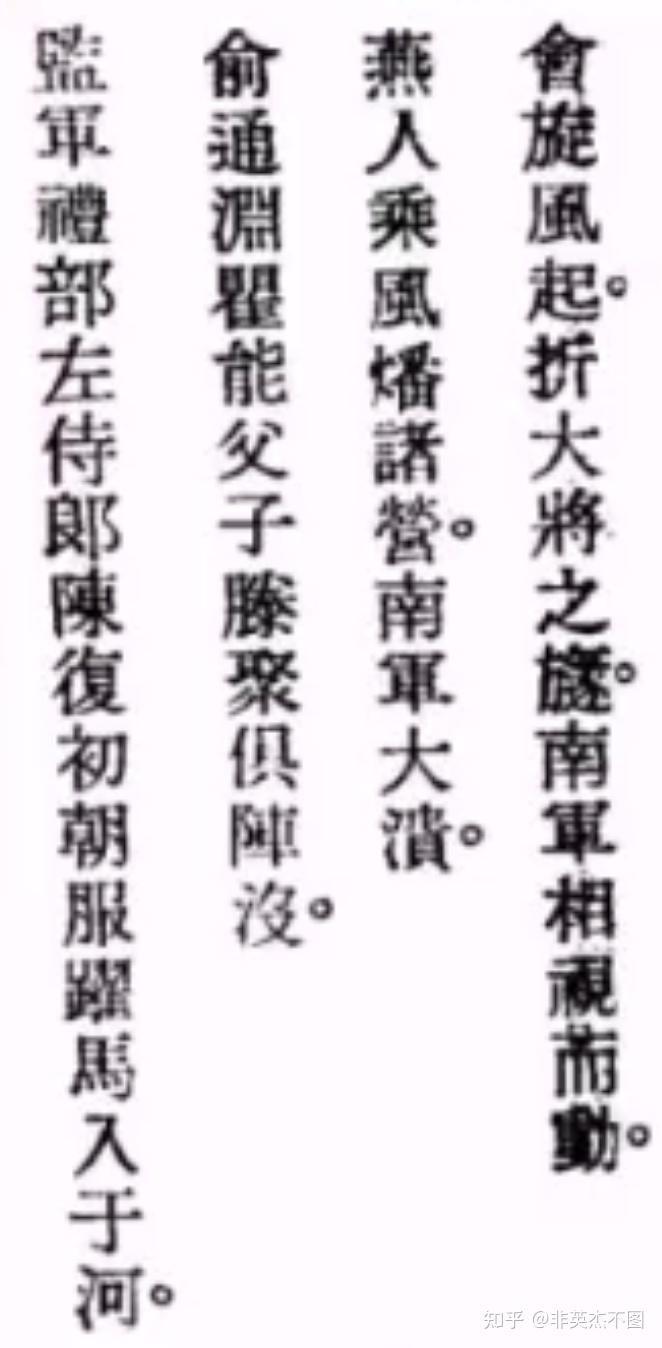 會旋風起。折大將之旞。南軍相視而動。
燕人乘風燔諸營。南軍大潰。
俞通淵瞿能父子滕聚俱陣沒。
監軍禮部左侍郎陳復初朝服躍馬入于河。
知乎 @非英杰不图